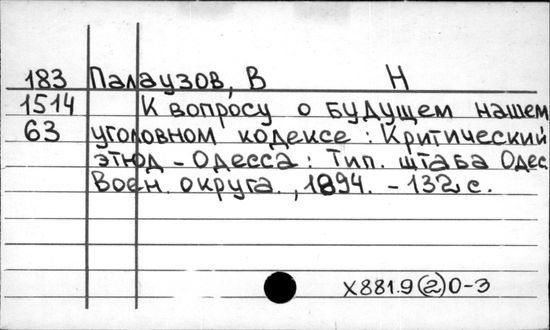 183 Палаузов, В Н
1514 К вопросу о будущем нашем
63 уголовном кодексе : Критический
этюд - Одесса : Тип. штаба Одес
Воен. округа., 1894. - 132 с.
X881.9(2)0-3